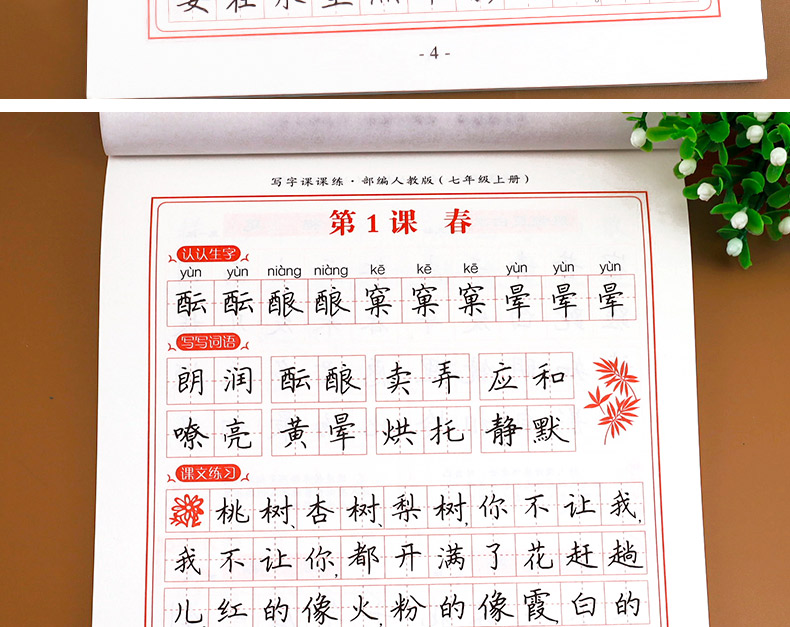 - 4 -
写字课课练·部编人教版(七年级上册)
第1课 春
认认生字
yùn yùn niàng niàng kē kē kē yùn yùn yùn
酝酝酿酿窠窠窠晕晕晕
写写词语
朗润 酝酿 卖弄 应和
嘹亮 黄晕 烘托 静默
课文练习
桃树、杏树、梨树,你不让我,
我不让你,都开满了花赶趟
儿。红的像火,粉的像霞,白的